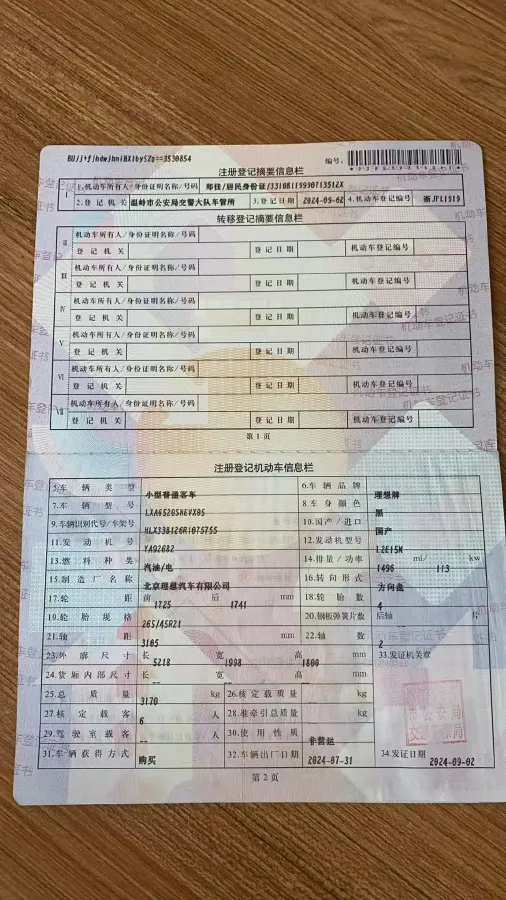 BU//j+fjhdwjhniHX1by5Zg==3530854 编号:
注册登记摘要信息栏
I 1.机动车所有人/身份证明名称/号码 郑佳/居民身份证/33108119990713512X
2.登记机关 温岭市公安局交警大队车管所 3.登记日期 2024-09-02 4.机动车登记编号 浙JFL1919
转移登记摘要信息栏
II 机动车所有人/身份证明名称/号码
登记机关 登记日期 机动车登记编号
III 机动车所有人/身份证明名称/号码
登记机关 登记日期 机动车登记编号
IV 机动车所有人/身份证明名称/号码
登记机关 登记日期 机动车登记编号
V 机动车所有人/身份证明名称/号码
登记机关 登记日期 机动车登记编号
VI 机动车所有人/身份证明名称/号码
登记机关 登记日期 机动车登记编号
VII 机动车所有人/身份证明名称/号码
登记机关 登记日期 机动车登记编号
第1页
注册登记机动车信息栏
5.车辆类型 小型普通客车 6.车辆品牌 理想牌
7.车辆型号 LXA6520SHEVX05 8.车身颜色 黑
9.车辆识别代号/车架号 HLX33B126R1075755 10.国产/进口 国产
11.发动机号 YA92682 12.发动机型号 L2E15M
13.燃料种类 汽油/电 14.排量/功率 1496 ml/ 113 kw
15.制造厂名称 北京理想汽车有限公司 16.转向形式 方向盘
17.轮距 前 1725 后 1741 mm 18.轮胎数 4
19.轮胎规格 265/45R21 20.钢板弹簧片数 后轴 -- 片
21.轴距 3105 mm 22.轴数 2
23.外廓尺寸 长 5218 宽 1998 高 1800 mm 33.发证机关章
24.货厢内部尺寸 长 -- 宽 -- 高 -- mm
25.总质量 3170 kg 26.核定载质量 -- kg
27.核定载客 6 人 28.准牵引总质量 -- kg
29.驾驶室载客 -- 人 30.使用性质 非营运
31.车辆获得方式 购买 32.车辆出厂日期 2024-07-31 34.发证日期 2024-09-02
第2页